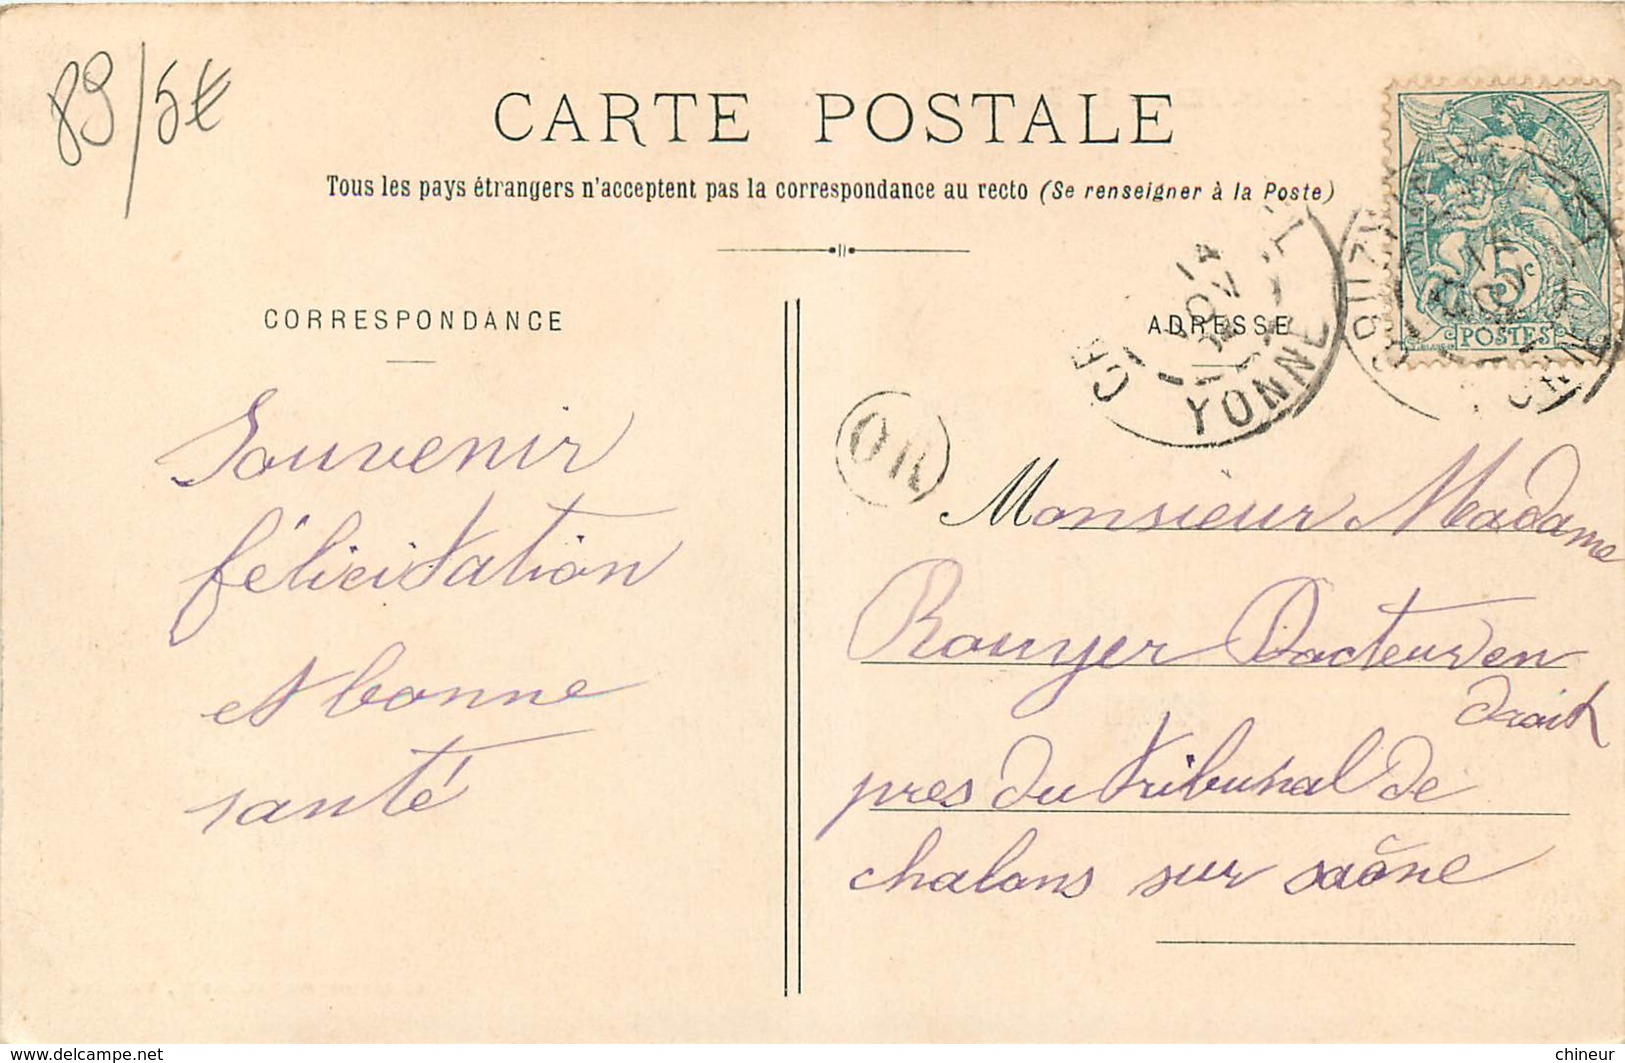 89/5€
CARTE POSTALE
Tous les pays étrangers n'acceptent pas la correspondance au recto (Se renseigner à la Poste)
CORRESPONDANCE
ADRESSE
Souvenir
félicitation
et bonne
santé
Monsieur Madame
Rouyer Docteur en
droit
pres du tribunal de
chalons sur saône
OR
YONNE
5c
POSTES
www.delcampe.net
chineur